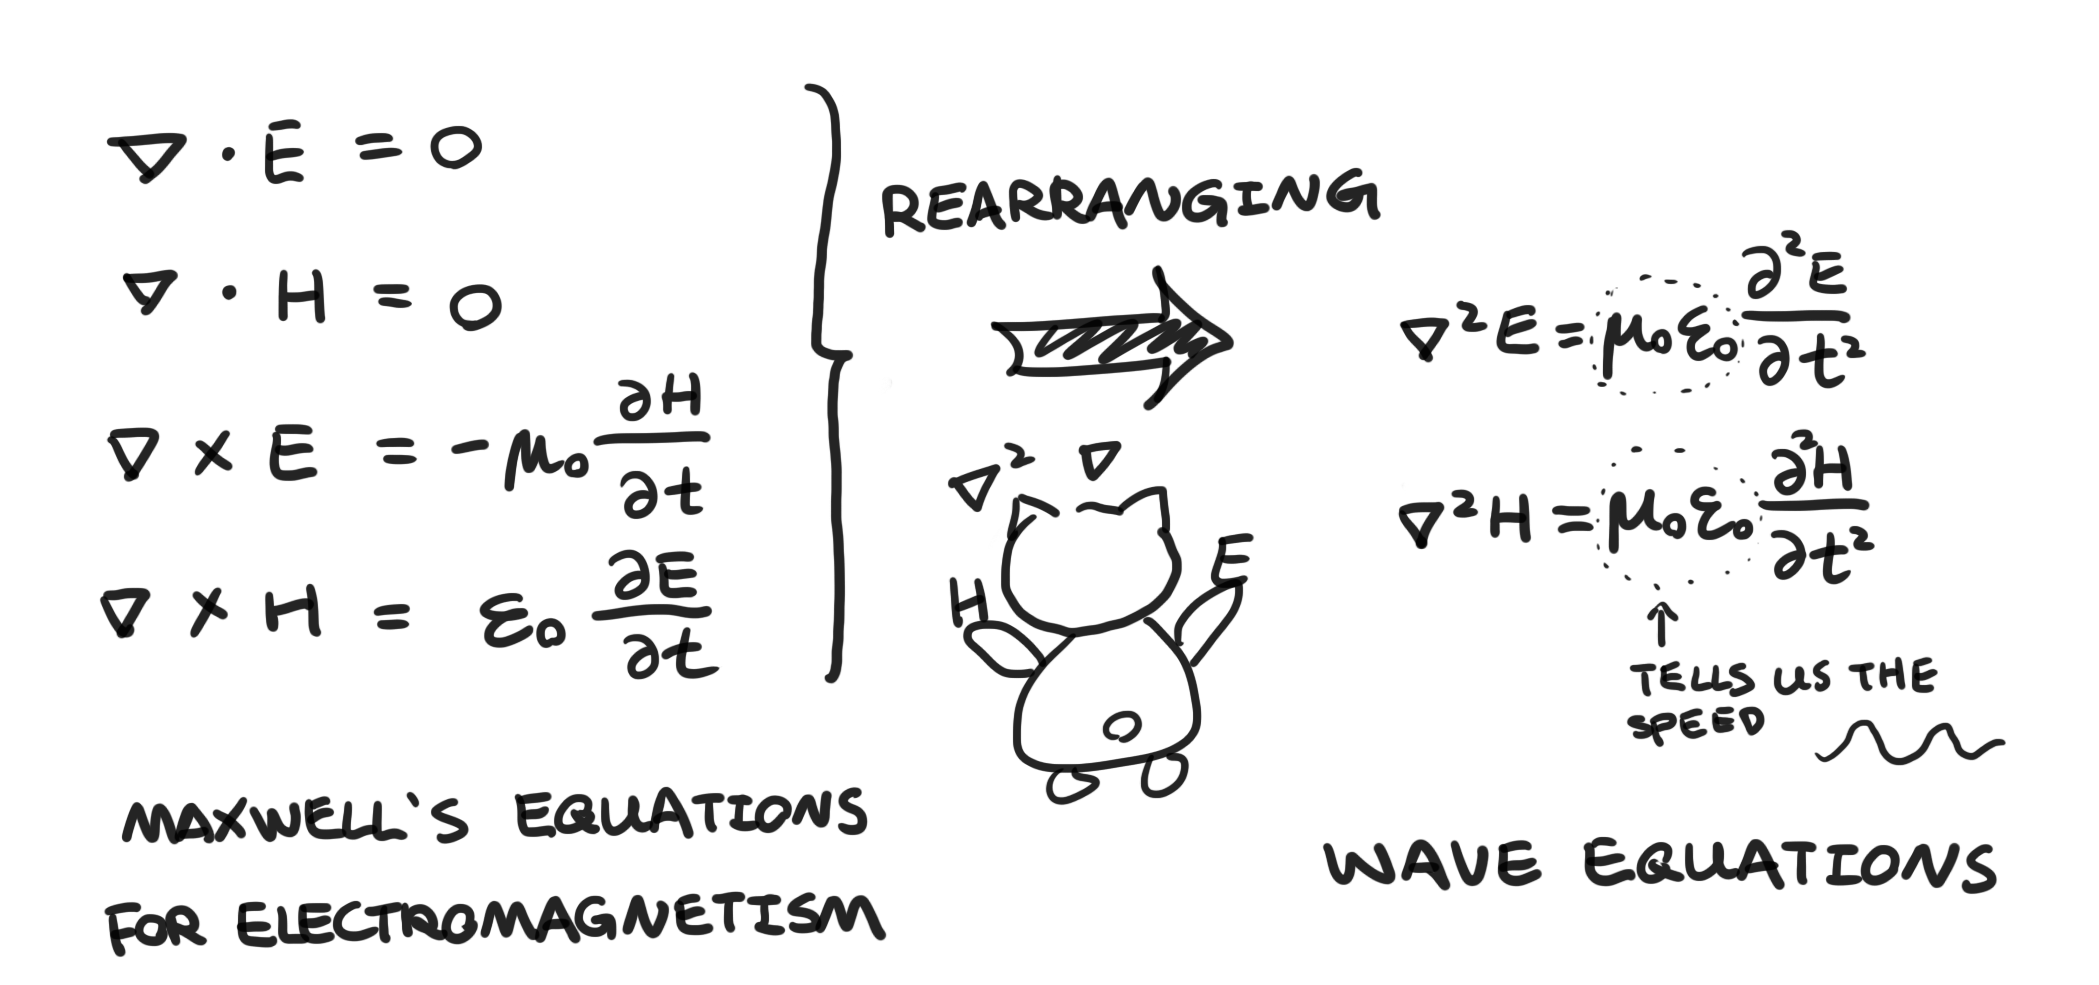 ∇ · E = 0
∇ · H = 0
∇ × E = -μ₀ ∂H/∂t
∇ × H = ε₀ ∂E/∂t
MAXWELL'S EQUATIONS
FOR ELECTROMAGNETISM
REARRANGING
∇² ∇
H E
∇²E = μ₀ε₀ ∂²E/∂t²
∇²H = μ₀ε₀ ∂²H/∂t²
TELLS US THE
SPEED
WAVE EQUATIONS